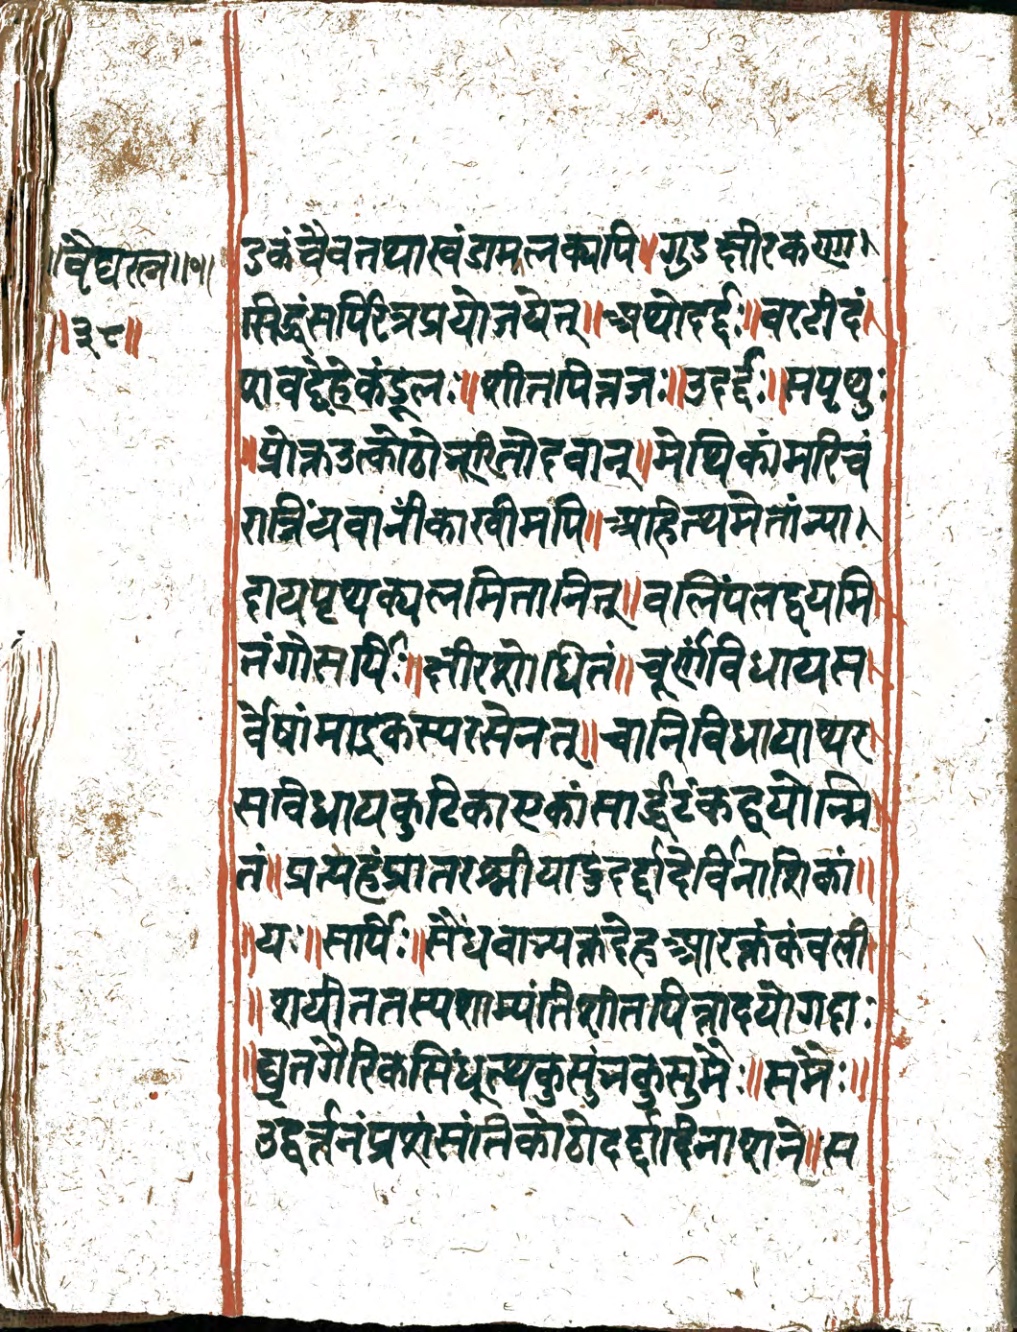 वैद्यरत्न॥७॥
॥३८॥
डकंचैवतथाखंडामलक्यपि॥गुडक्षीरकणा।
सिद्धंसर्पिरत्रप्रयोजयेत्॥अथोदर्दः॥वरटीदं
शवद्देहेकंडूलः॥शीतपित्तजः॥उदर्दः॥सपृष्युः
॥प्रोक्तउत्कोठोन्नरितोदवान्॥मेथिकांमरिचं
रात्रिंयवानींकारवीमपि॥आहित्थमेतांन्या।
दायपृथक्पलमितानित्॥वलिंपलद्वयमि
तंगोसर्पिः॥क्षीरशोधितं॥चूर्णंविधायस
र्वेषांमाड्कस्यरसेनत्॥चानिविधायाथर
सविधायकुटिकाएकांसार्द्धटंकद्वयोन्मि
तं॥प्रत्यहंप्रातरश्नीयादुदर्द्दादेर्विनाशिकां॥
॥यः॥सर्पिः॥सैंधवाभ्यक्तदेहआरक्तंकंवली
॥शयीततस्यशाम्यंतिशीतपित्तादयोगदाः
॥घृतगैरिकसिंधूत्थकुसुंभकुसुमैः॥समैः॥
उद्वर्त्तनंप्रशंसंतिकोठोदर्द्दादिनाशने॥स